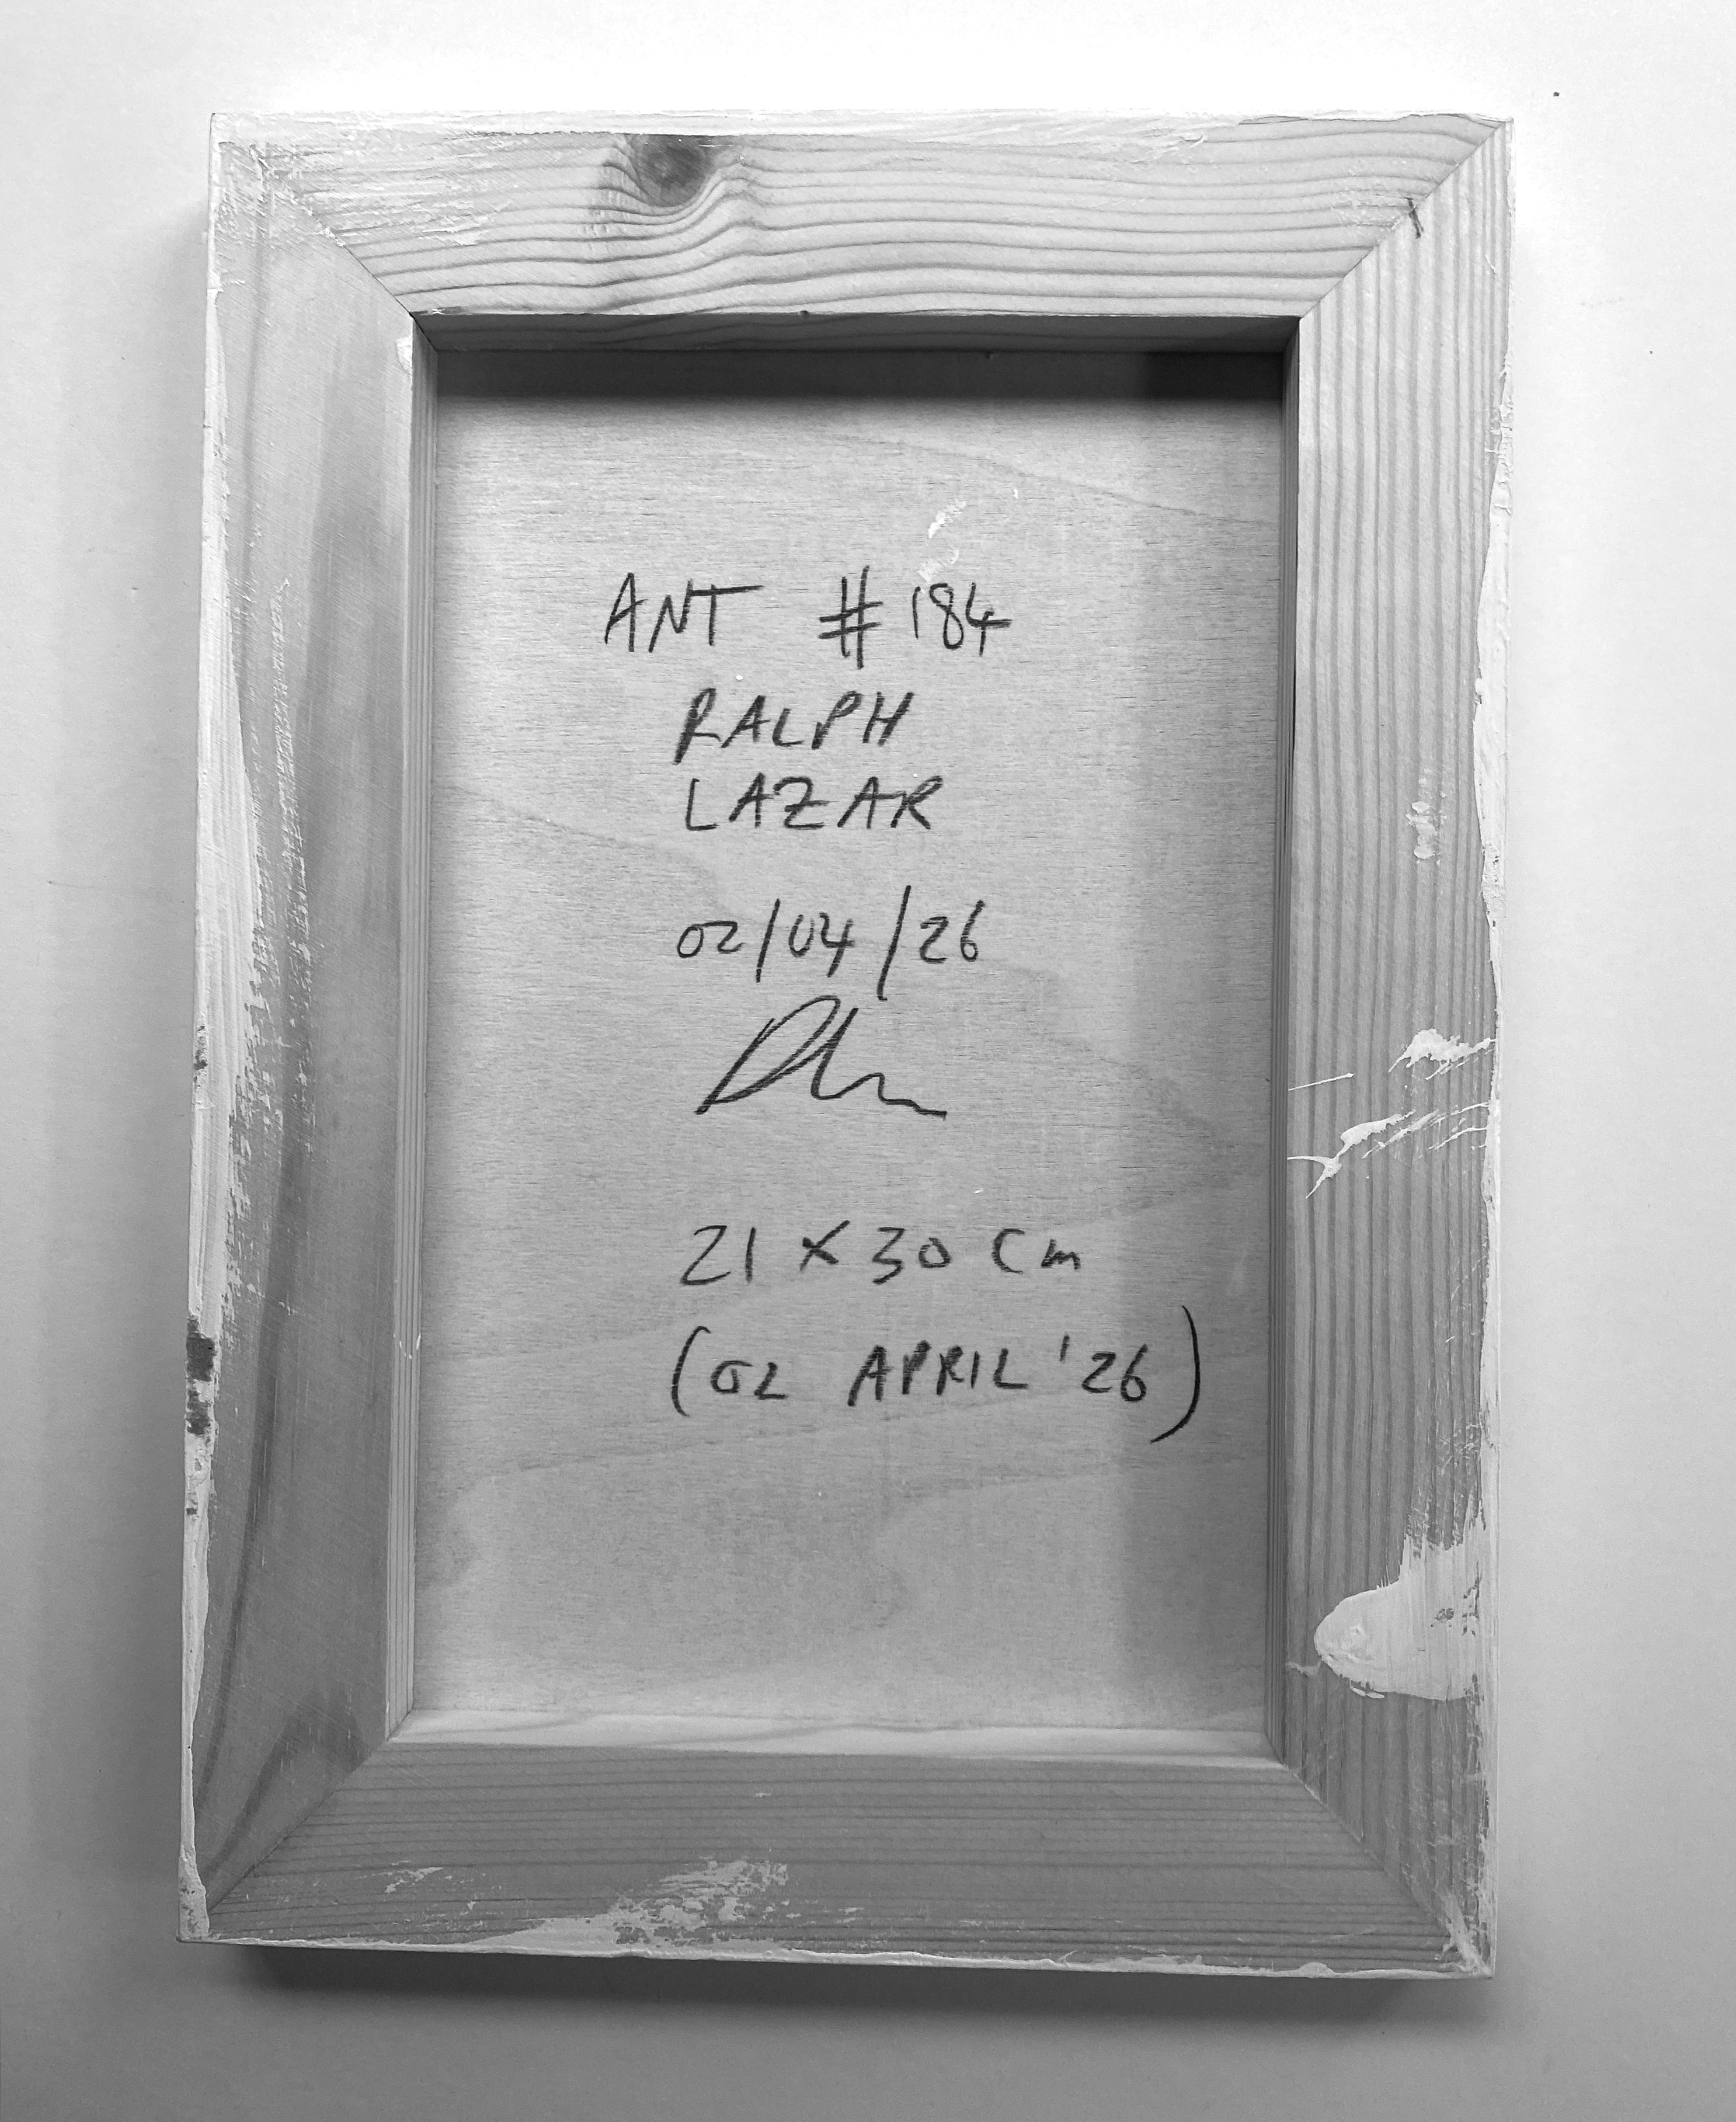 ANT #184
RALPH
LAZAR
02/04/26
21 x 30 cm
(02 APRIL '26)